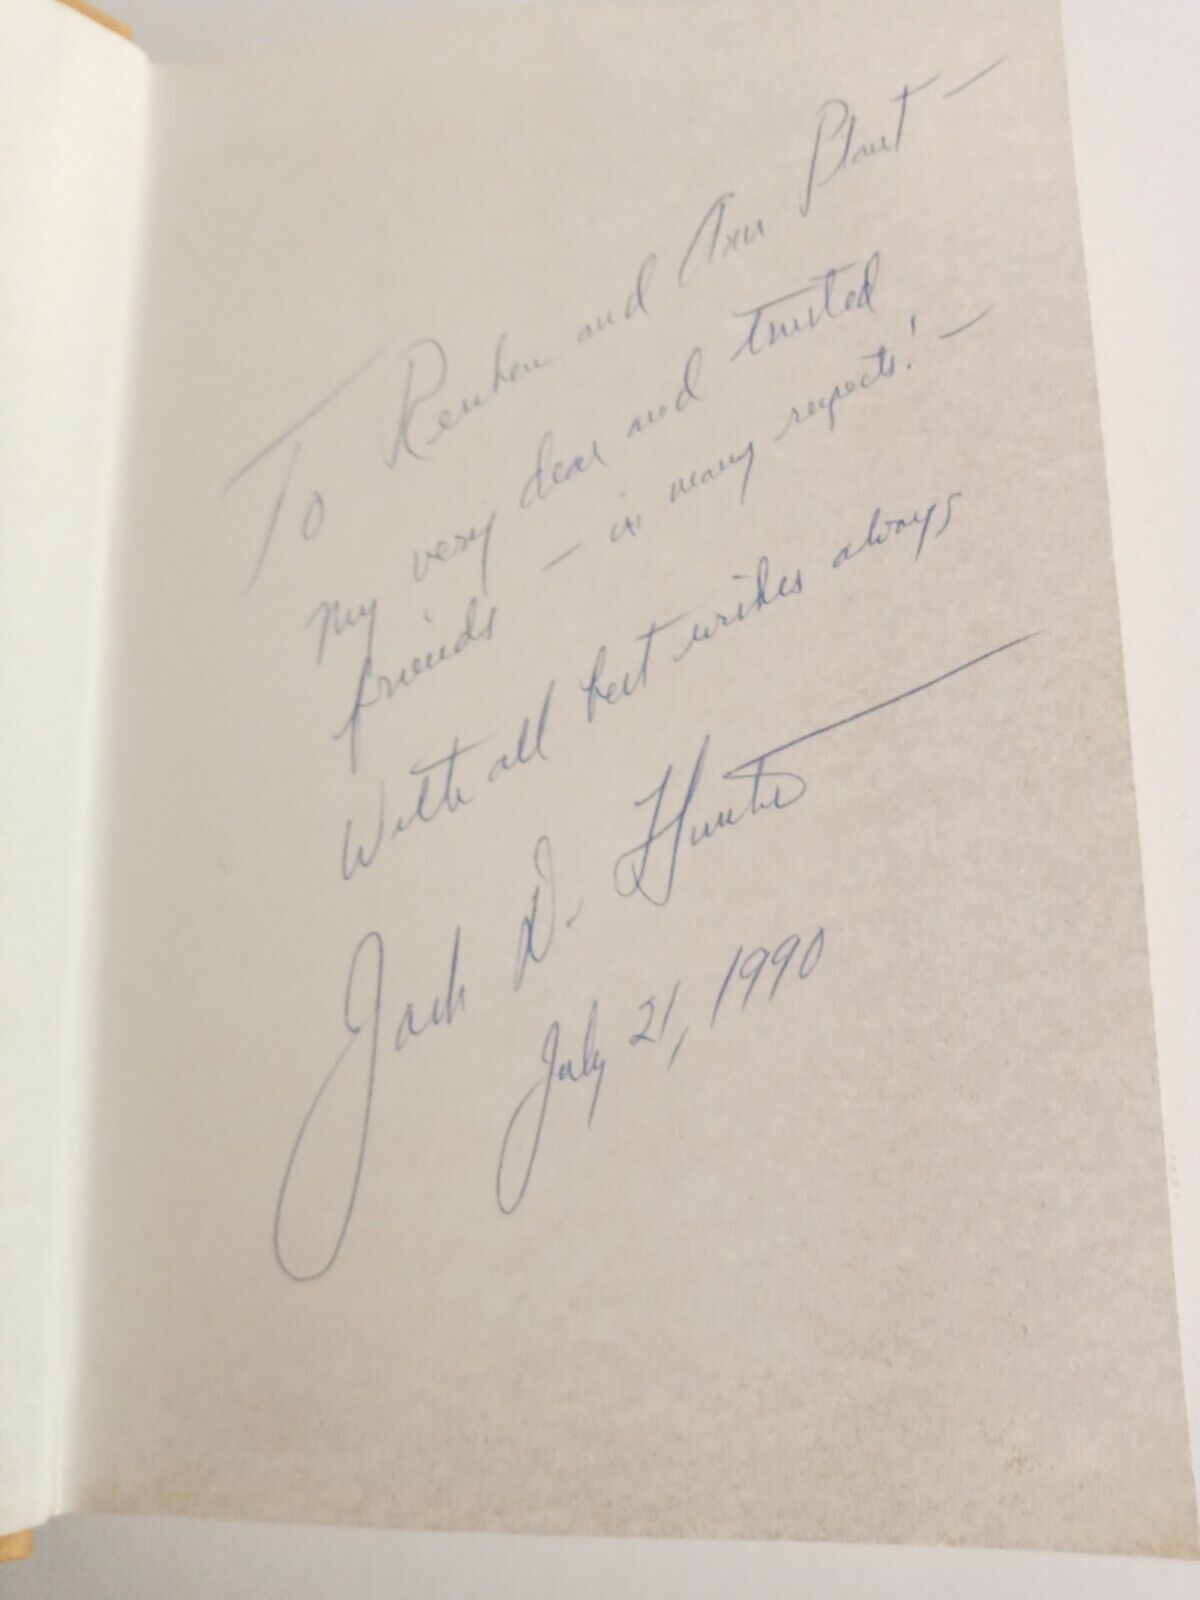 To Reuben and Ann Plaut —
my very dear and trusted
friends — in many respects! —
With all best wishes always
Jack D. Hunter
July 21, 1990